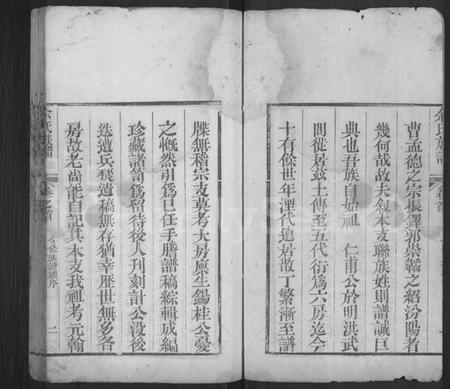 曹孟德之宗振鐸郭崇韜之紹汾陽者
幾何哉故夫敘本支聯族姓則譜誠巨
典也吾族自始祖 仁甫公於明洪武
間從居茲土傳至五代衍爲六房迄今
十有餘世年湮代遠居散丁繁漸至譜
牒無稽宗支莫考大房廩生錫桂公憂
之慨然引爲己任手謄譜稿綜輯成編
珍藏諸笥爲留待後人刊刻計公沒後
迭遭兵燹遺稿無存猶幸歷世無多各
房故老尚能自記其本支我祖考元翰
余氏族譜 卷首
余氏族譜 卷之首
二